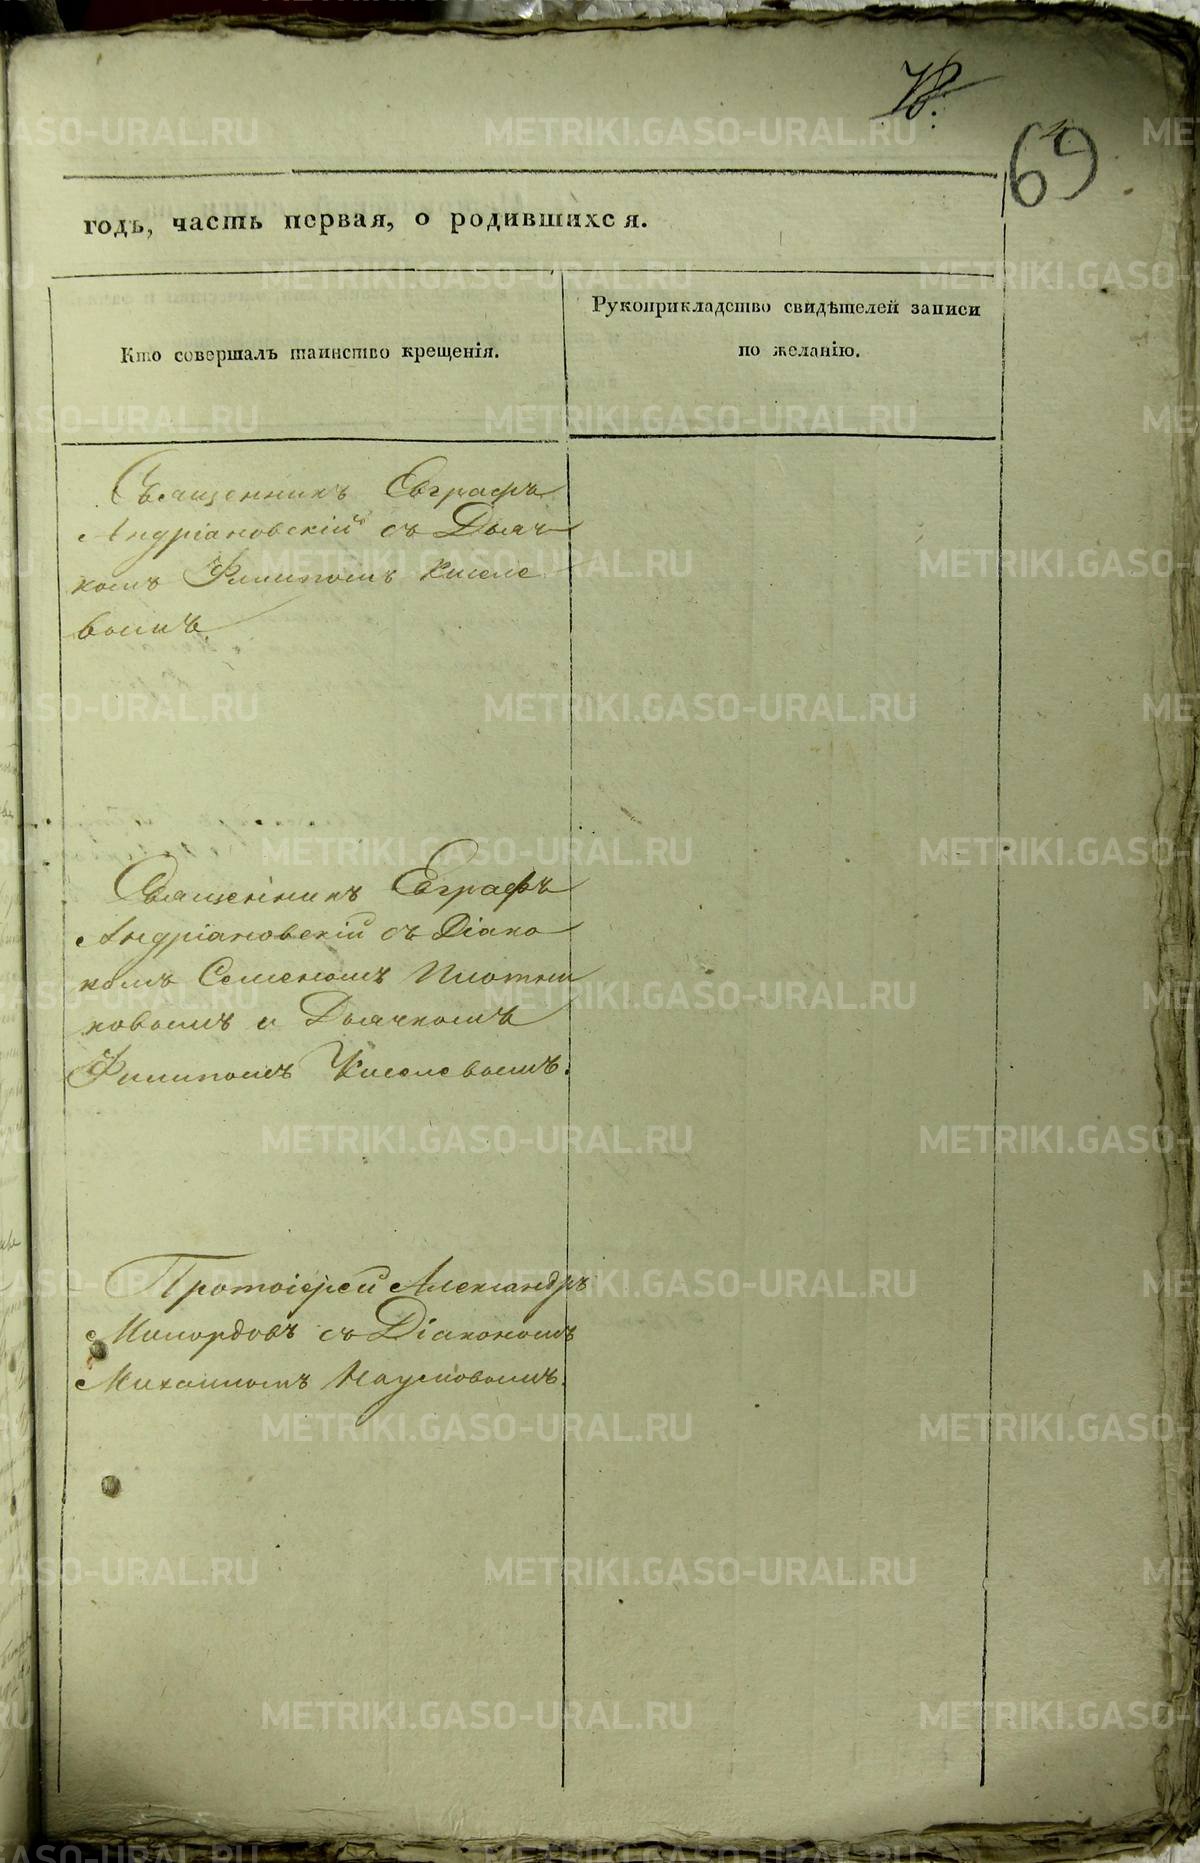 69
годъ, часть первая, о родившихся.
Кто совершалъ таинство крещенія.
Рукоприкладство свидѣтелей записи
по желанію.
Священникъ Евграфъ
Андріановскій съ Дьяч-
комъ Филипомъ Киселе
вымъ.
Священникъ Евграфъ
Андріановскій съ Діако
номъ Семеномъ Плотни
ковымъ и Дьячкомъ
Филипомъ Киселевымъ.
Протоіерей Александръ
Милордовъ съ Діакономъ
Михаиломъ Наумовымъ.
METRIKI.GASO-URAL.RU